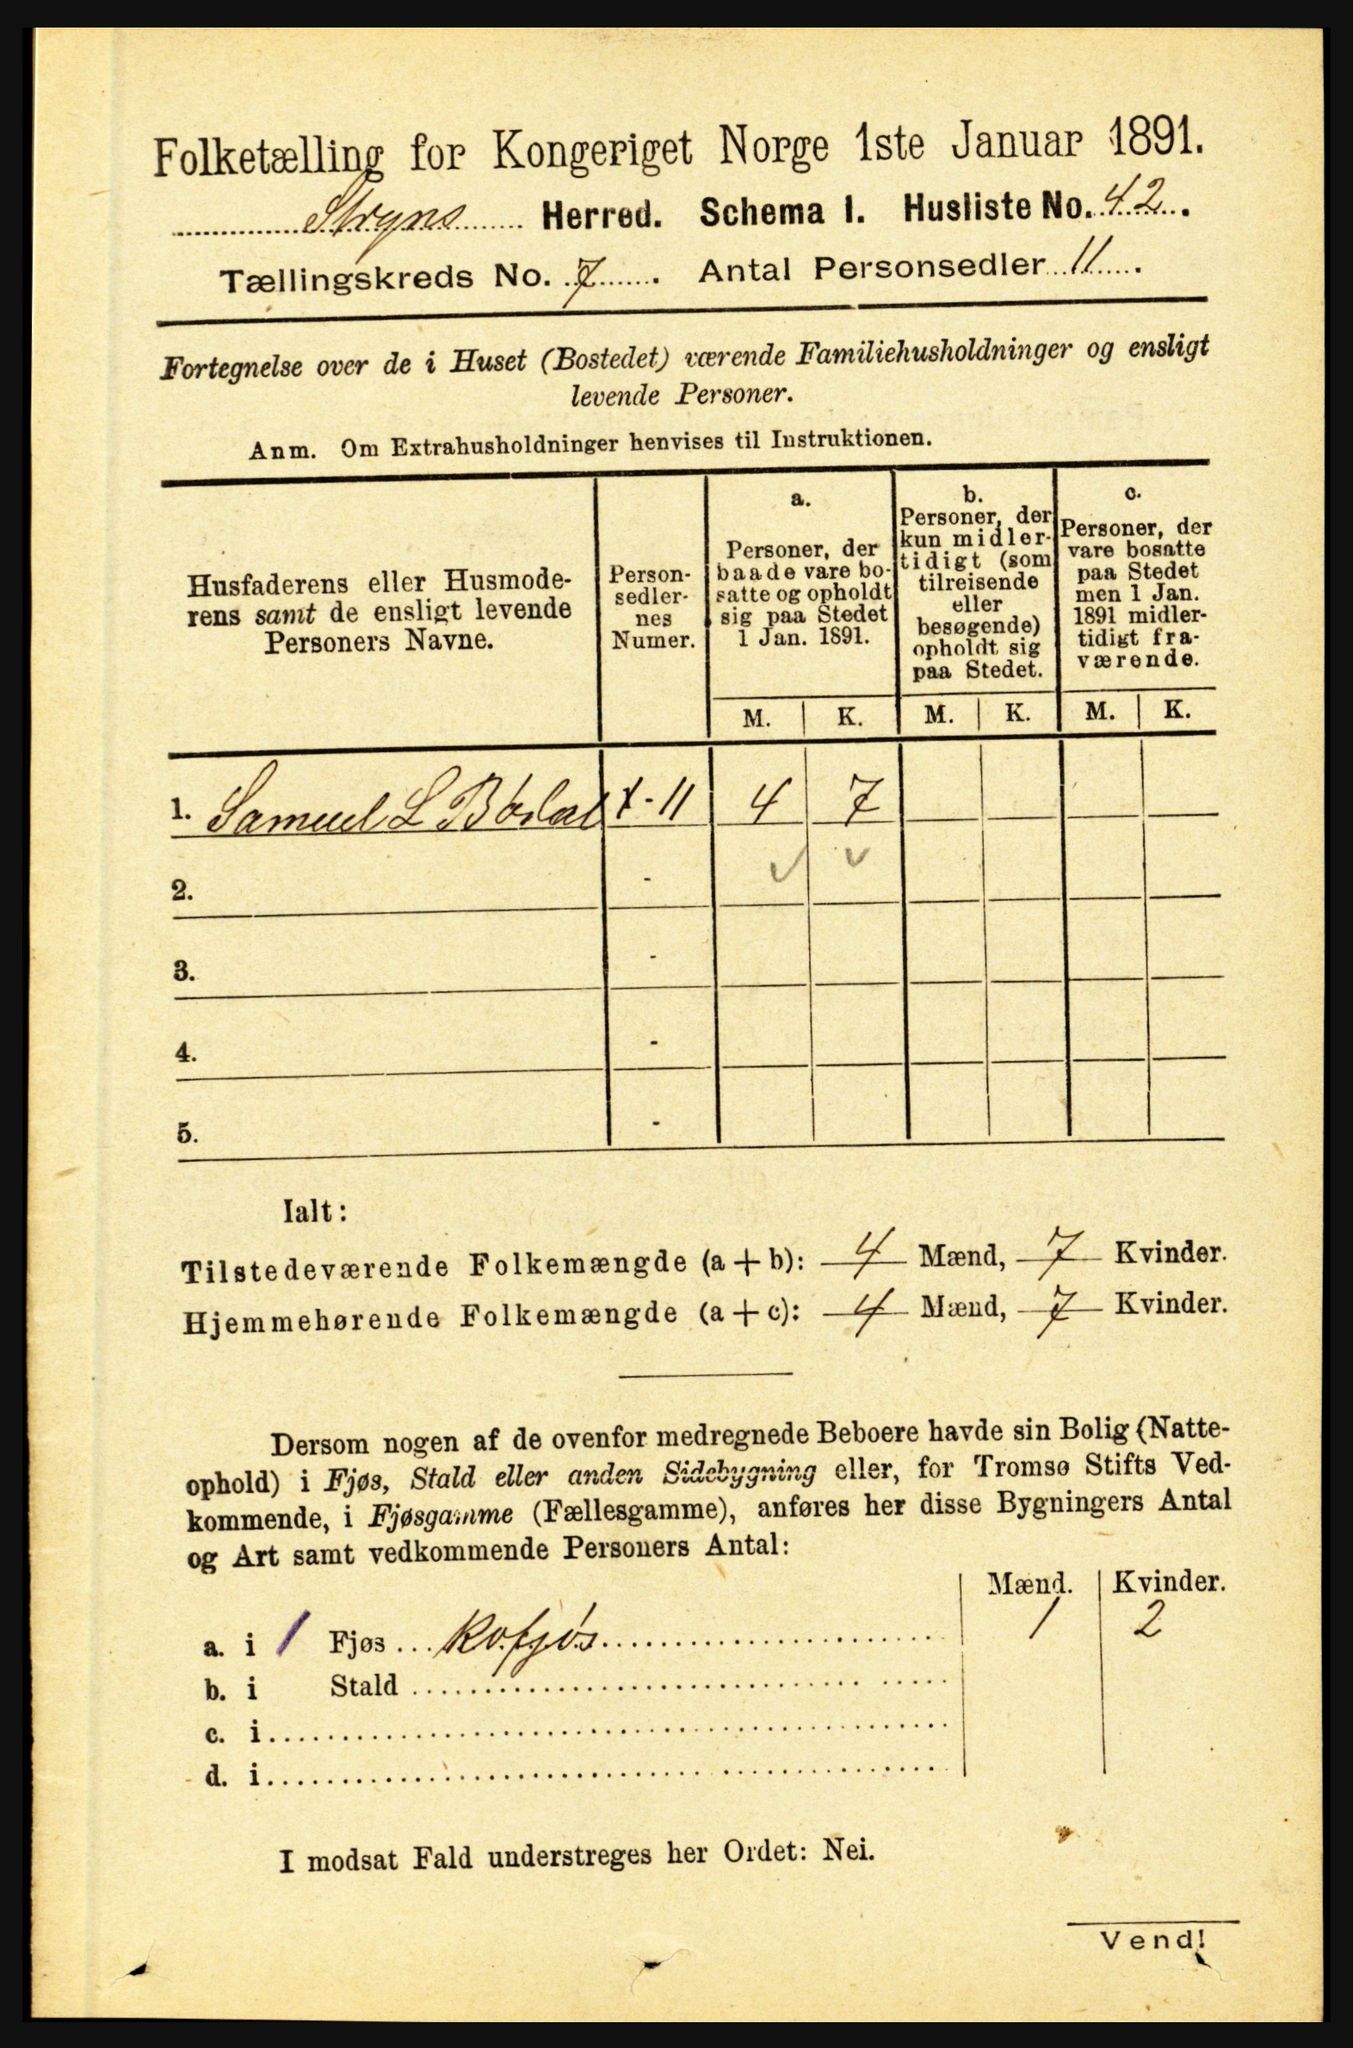 Folketælling for Kongeriget Norge 1ste Januar 1891.
Stryns Herred. Schema I. Husliste No. 42.
Tællingskreds No. 7. Antal Personsedler 11.
Fortegnelse over de i Huset (Bostedet) værende Familiehusholdninger og ensligt
levende Personer.
Anm. Om Extrahusholdninger henvises til Instruktionen.
Husfaderens eller Husmode-
rens samt de ensligt levende
Personers Navne.
Person-
sedler-
nes
Numer.
a.
Personer, der
baade vare bo-
satte og opholdt
sig paa Stedet
1 Jan. 1891.
b.
Personer, der
kun midler-
tidigt (som
tilreisende
eller
besøgende)
opholdt sig
paa Stedet.
c.
Personer, der
vare bosatte
paa Stedet
men 1 Jan.
1891 midler-
tidigt fra-
værende.
M. K. M. K. M. K.
1. Samuel L 1-11 4 7
2. -
3. -
4. -
5. -
Ialt:
Tilstedeværende Folkemængde (a + b): 4 Mænd, 7 Kvinder.
Hjemmehørende Folkemængde (a + c): 4 Mænd, 7 Kvinder.
Dersom nogen af de ovenfor medregnede Beboere havde sin Bolig (Natte-
ophold) i Fjøs, Stald eller anden Sidebygning eller, for Tromsø Stifts Ved-
kommende, i Fjøsgamme (Fællesgamme), anføres her disse Bygningers Antal
og Art samt vedkommende Personers Antal:
Mænd. Kvinder.
a. i 1 Fjøs Kofjøs 1 2
b. i Stald
c. i
d. i
I modsat Fald understreges her Ordet: Nei.
Vend!